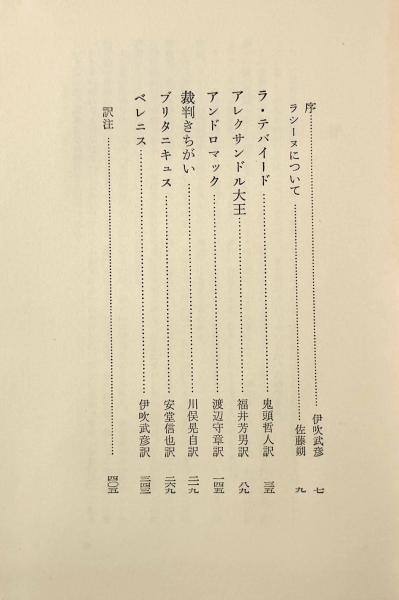 序……………………伊吹武彦 七
ラシーヌについて……………………佐藤朔 九
ラ・テバイード……………………鬼頭哲人訳 三五
アレクサンドル大王……………………福井芳男訳 八九
アンドロマック……………………渡辺守章訳 一四五
裁判きちがい……………………川俣晃自訳 二一九
ブリタニキュス……………………安堂信也訳 二六九
ベレニス……………………伊吹武彦訳 三四三
訳注……………………四〇五